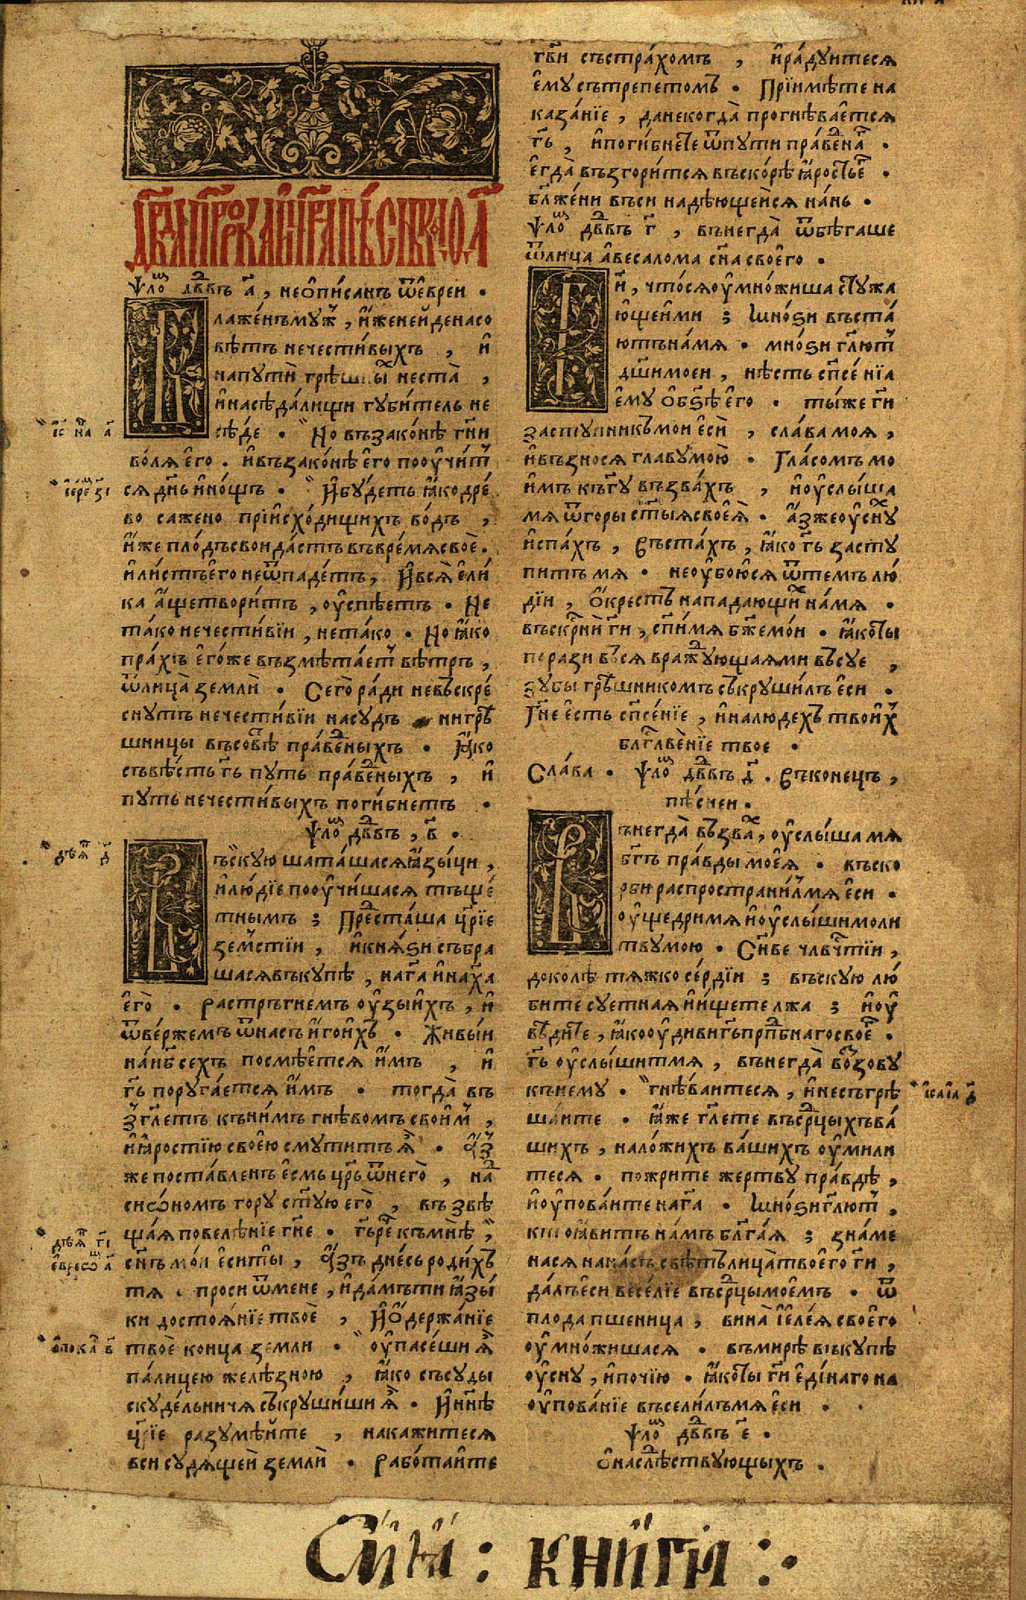 Дв҃да прⷪ҇рка и цр҃ѧ пѣснь
ѱⷧ҇ѡ дв҃дъ а҃, неѡписанъ ѿеврей.
лаже́нъ мꙋ́ж, и҆́же не и҆́де на со
вѣ́тъ нечести́выхъ, и҆
на пꙋти̑ грѣ́шны не ста̀,
и҆ на сѣда́лищи гꙋби́тель не
сѣ́де. Но въ зако́нѣ гн҃и
во́лѧ є҆го̀. и҆ въ зако́нѣ є҆го̀ поꙋчи́т
сѧ дн҃ь и҆ но́щъ. И҆ бꙋ́деть ꙗ҆́ко дрé
во сажено при и҆схо́дищихъ во́дъ,
и҆́же пло́дъ свои да́стъ въ вре́мѧ своѐ.
и҆ ли́стъ є҆го̀ не ѿпаде́тъ, И҆ всѧ̀ є҆ли́
ка а҆́ще твори́тъ, оу҆спѣ́етъ. Не
та́ко нечести́вїи, не та́ко. Но ꙗ҆́ко
пра́хъ є҆го́же възмѣта́ет вѣ́тръ,
ѿ лица̀ землѝ. Сего̀ ра́ди невъскрé
снꙋтъ нечести́вїи на сꙋдъ ни грѣ
шницы въ совѣ́ пра́веⷣныхъ. Ꙗ҆́ко
съвѣ́сть гь҃ пꙋть пра́веⷣныхъ, и҆
пꙋть нечести́выхъ поги́бнетъ.
ѱⷧ҇ѡ дв҃дъ, в҃.
ъскꙋю шата́шасѧ ꙗ҆зы́ци,
и҆ лю́дїе поꙋчи́шасѧ тъщé
тнымъ; Пре́сташа цр҃їе
зе́мстїи, и҆ кнѧ́ѕи събра
шасѧ въкꙋпѣ, на га҃ и҆ на ха҃
є҆го̀. растръгнемъ оу҆́зы и҆́хъ, и҆
ѿве́ржемъ ѿ насъ и҆́го и҆́хъ. Живы́и
на нб҃сехъ посмѣ́етсѧ и҆̀мъ, и҆
гь҃ порꙋга́етсѧ и҆̀мъ. тогда̀ въ
зг҃летъ къ ни́мъ гнѣ́вомъ свои́м,
и҆ ꙗ҆́ростїю свое́ю смꙋти́тъ ѧ҆̀. А҆́з
же поста́вленъ є҆́смь цр҃ь ѿ него̀, наⷣ
сиѡ́номъ горꙋ ст҃ꙋю є҆го̀, възвѣ
ща́ѧ повелѣ́нїе гн҃е. гь҃ ре къ мнѣ̀,
сн҃ъ мо́и є҆си ты̀, А҆́зъ дне́сь роди́хъ
тѧ. проси ѿ мене, и҆ да́мъ ти ꙗ҆зы́
ки достоѧ́нїе твоѐ, И҆ ѡ҆держа́нїе
твоѐ конца̀ земли. оу҆пасе́ши ѧ҆̀
па́лицею желѣ́зною, ꙗ҆́ко съсꙋды
скꙋде́льничѧ съкрꙋши́ши ѧ҆̀. И҆ нн҃ѣ
цр҃їе разꙋмѣ́ите, накажитесѧ
вси сꙋдѧ́щей землѝ. рабо́таите
гв҃и съ стра́хомъ, и҆ ра́дꙋитесѧ
є҆мꙋ съ тре́петомъ. Прїимѣ́те на
каза́нїе, да не когда̀ прогнѣ́ваетсѧ
гь҃, и҆ поги́бнете ѿ пꙋти пра́веⷣна.
є҆гда̀ възгори́тсѧ въско́рѣ ꙗ҆́рость є҆.
бл҃же́ни вси надѣ́ющейсѧ на́нь.
ѱⷧ҇ѡ дв҃дъ г҃, вънегда̀ ѿбѣ́гаше
ѿ лица авесалома сн҃а своего̀.
и҃, что́ сѧ оу҆мно́жиша стꙋжа
ю́щеи ми; Мно́ѕи въста́
ютъ на́ мѧ. мно́ѕи гл҃ют
дш҃и моеи, нѣ́сть сп҃се́нїа
є҆мꙋ о҆ бз҃ѣ є҆го̀. ты́ же ги҃
застꙋпникъ мои є҆сѝ, сла́ва моѧ,
и҆ възносѧ̀ главꙋ мою̀. Гла́сомъ мо
и́мъ къ гꙋ҃ възва́хъ, и҆ оу҆слы́ша
мѧ ѿ горы̀ ст҃ыѧ своеѧ̀. А҆́з же оу҆снꙋ
и҆ спа́хъ, въста́хъ, ꙗ҆́ко гь҃ застꙋ
питъ мѧ. не оу҆бою́сѧ ѿ те́мъ лю
дїи, О҆́крестъ напада́ющи на́ мѧ.
въскр҃нѝ ги҃, сп҃си́ мѧ бж҃е мо́и. ꙗ҆́ко ты
порази всѧ вражꙋющаѧ ми въсꙋе,
зꙋ́бы грѣ́шникомъ съкрꙋши́лъ є҆си.
Гн҃е є҆сть сп҃се́нїе, и҆ на людехъ твои́х
бл҃гⷭ҇ве́нїе твое.
Сла́ва. ѱⷧ҇ѡ дв҃дъ д҃. въ коне́цъ,
пѣ́сней.
ънегда̀ възва́, оу҆слы́ша мѧ
бг҃ъ пра́вды моеѧ̀. въ ско
рби распространи́лъ мѧ є҆си.
оу҆ще́дри мѧ и҆ оу҆слы́ши моли
твꙋ мою. Сн҃ове чл҃вчⷭ҇тїи,
доколѣ̀ тѧжкосе́рдїи; въскꙋю лю́
бите сꙋетнаѧ и҆ и҆́щете лжа; и҆ оу҆
вѣ́дите, ꙗ҆́ко оу҆диви гь҃ прпⷣбнаго своеⷢ.
гь҃ оу҆слы́шит мѧ, вънегда̀ възовꙋ
къ немꙋ. гнѣ́ваитесѧ, и҆ не съгрѣ
ша́ите. ꙗ҆́же гл҃ете въ срⷣцыхъ ва́
шихъ, на ло́жихъ ва́шихъ оу҆мили
тесѧ. пожрите же́ртвꙋ пра́вдѣ,
и҆ оу҆пова́ите на га҃. Мно́ѕи гл҃ют.
кто ꙗ҆ви́тъ на́мъ бл҃га́ѧ; зна́ме
насѧ на на́съ свѣ́тъ лица̀ твоего̀ ги҃,
да́лъ є҆си весе́лїе въ срⷣцы мое́мъ. ѿ
плода пшеница, вина и҆ є҆ле́ѧ своего̀
оу҆мно́жишасѧ. въ ми́рѣ въкꙋпѣ
оу҆снꙋ, и҆ почі́ю. ꙗ҆́ко ты ги҃ є҆ди́наго на
оу҆пова́нїе всели́лъ мѧ є҆си.
ѱⷧ҇ѡ дв҃дъ е҃.
О҆ наслѣ́дствꙋющыхъ.
Сі́ѧ: книги: